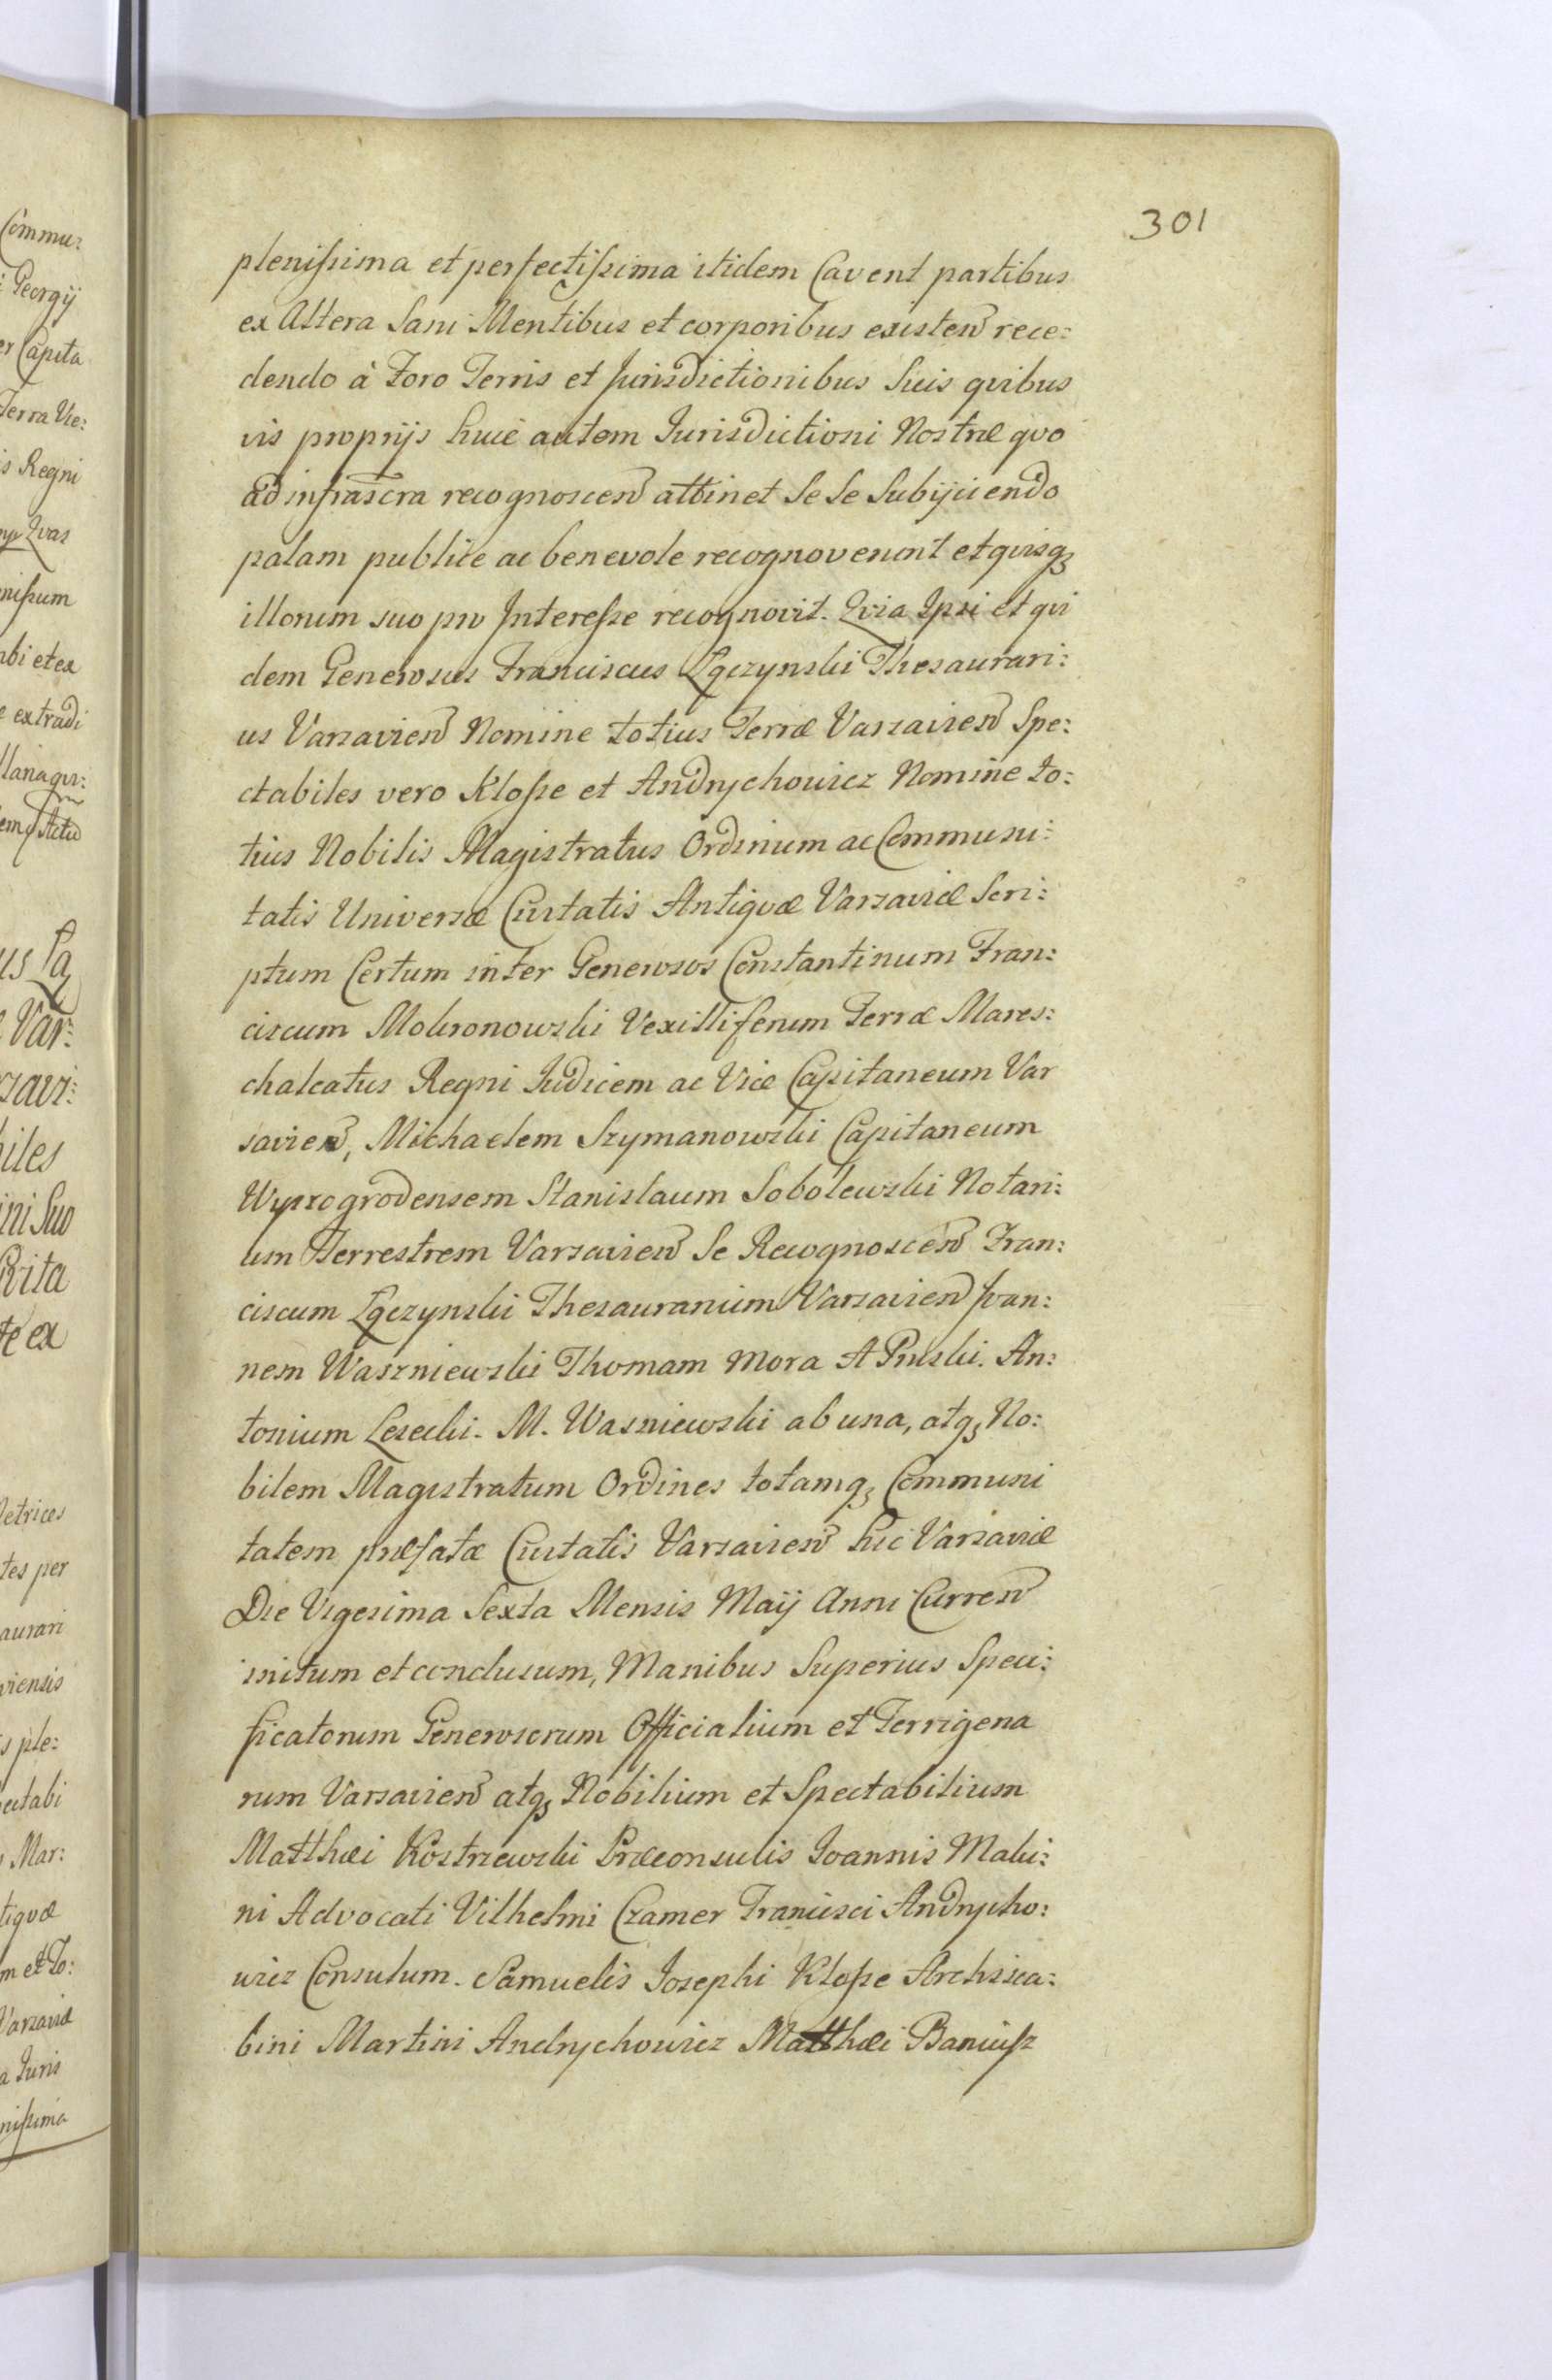 301
plenissima et perfectissima itidem Cavent partibus
ex Altera Sani Mentibus et corporibus existen rece:
dendo à Foro Terris et Jurisdictionibus Suis quibus
vis proprijs huic autem Jurisdictioni Nostræ quo
ad infrascra recognoscen attinet Se Se Subijciendo
palam publice ac benevole recognoverunt et quisq3
illorum suo pro Interesse recognovit. Qvia Ipsi et qvi
dem Generosus Franciscus Łączynski Thesaurari:
us Varsavien Nomine totius Terræ Varsavien Spe:
ctabiles vero Klosse et Andrychowicz Nomine to:
tius Nobilis Magistratus Ordinum ac Communi:
tatis Universæ Civitatis Antiqvæ Varsaviæ Scri:
ptum Certum inter Generosos Constantinum Fran:
ciscum Mokronowski Vexilliferum Terræ Mares:
chalcatus Regni Iudicem ac Vice Capitaneum Var
savien, Michaelem Szymanowski Capitaneum
Wyszogrodensem Stanislaum Sobolewski Notari:
um Terrestrem Varsavien Se Recognoscen Fran:
ciscum Łączynski Thesaurarium Varsavien Joan:
nem Waszniewski Thomam Mora A Pruski. An:
tonium Lesecki. M. Wasniewski ab una, atq3 No:
bilem Magistratum Ordines totamq3 Communi
tatem præfatæ Civitatis Varsavien hic Varsaviæ
Die Vigesima Sexta Mensis Maij Anni Curren
initum et conclusum, Manibus Superius Speci:
ficatorum Generosorum Officialium et Terrigena
rum Varsavien atq3 Nobilium et Spectabilium
Matthæi Kostrzewski Præconsulis Joannis Maki:
ni Advocati Vilhelmi Czamer Francisci Andrycho:
wicz Consulum. Samuelis Josephi Klosse Archisca:
bini Martini Andrychowicz Matthæi Baniusz